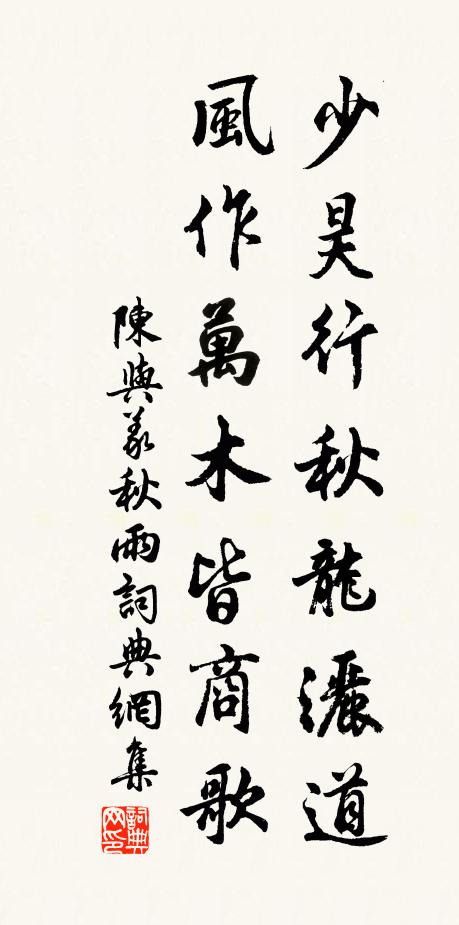 少昊行秋龍灑道
風作萬木皆商歌
陳與義秋雨詞典網集
詞典
網印